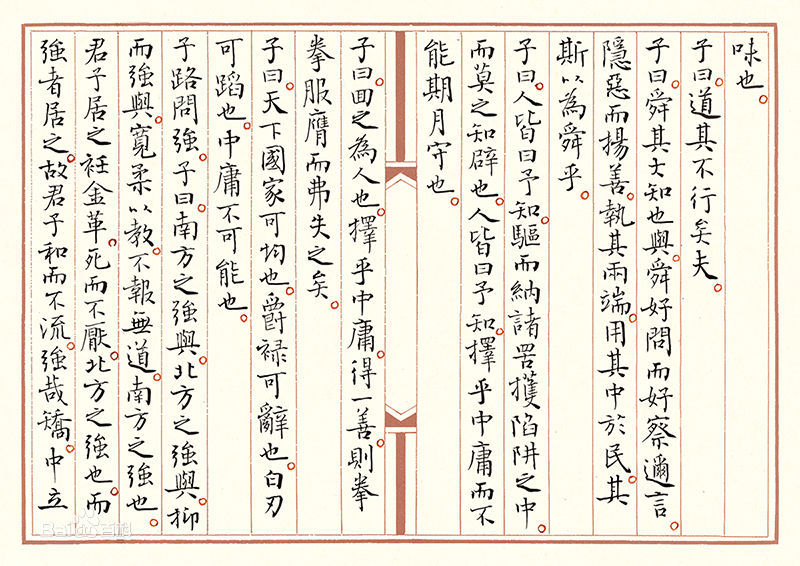 味也。
子曰。道其不行矣夫。
子曰。舜其大知也與。舜好問而好察邇言。
隱惡而揚善。執其兩端。用其中於民。其
斯以為舜乎。
子曰。人皆曰予知。驅而納諸罟擭陷阱之中。
而莫之知辟也。人皆曰予知。擇乎中庸而不
能期月守也。
子曰。回之為人也。擇乎中庸。得一善。則拳
拳服膺而弗失之矣。
子曰。天下國家可均也。爵祿可辭也。白刃
可蹈也。中庸不可能也。
子路問強。子曰。南方之強與。北方之強與。抑
而強與。寬柔以教。不報無道。南方之強也。
君子居之。衽金革。死而不厭。北方之強也。而
強者居之。故君子和而不流。強哉矯。中立
Baidu百科